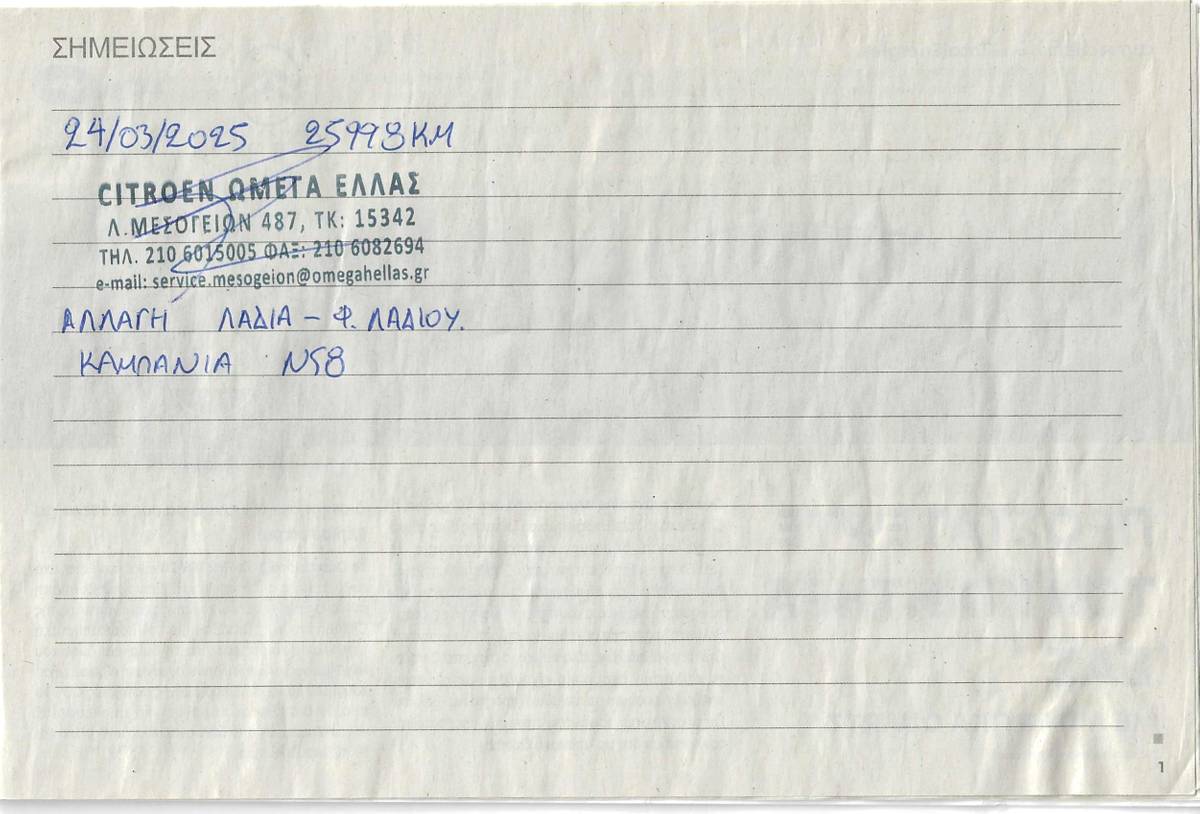 ΣΗΜΕΙΩΣΕΙΣ
24/03/2025 25998ΚΜ
CITROEN ΩΜΕΓΑ ΕΛΛΑΣ
Λ.ΜΕΣΟΓΕΙΩΝ 487, ΤΚ: 15342
ΤΗΛ. 210 6015005 ΦΑΞ: 210 6082694
e-mail: service.mesogeion@omegahellas.gr
ΑΛΛΑΓΗ ΛΑΔΙΑ – Φ. ΛΑΔΙΟΥ.
ΚΑΜΠΑΝΙΑ N58
1